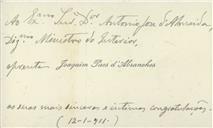 Ao Exmo. Snr. Dor. Antonio José d'Almeida,
Digmo. Ministro do Interior,
apresenta Joaquim Paes d'Abranches
as suas mais sinceras e intimas congratulações.
(12-1-911.)